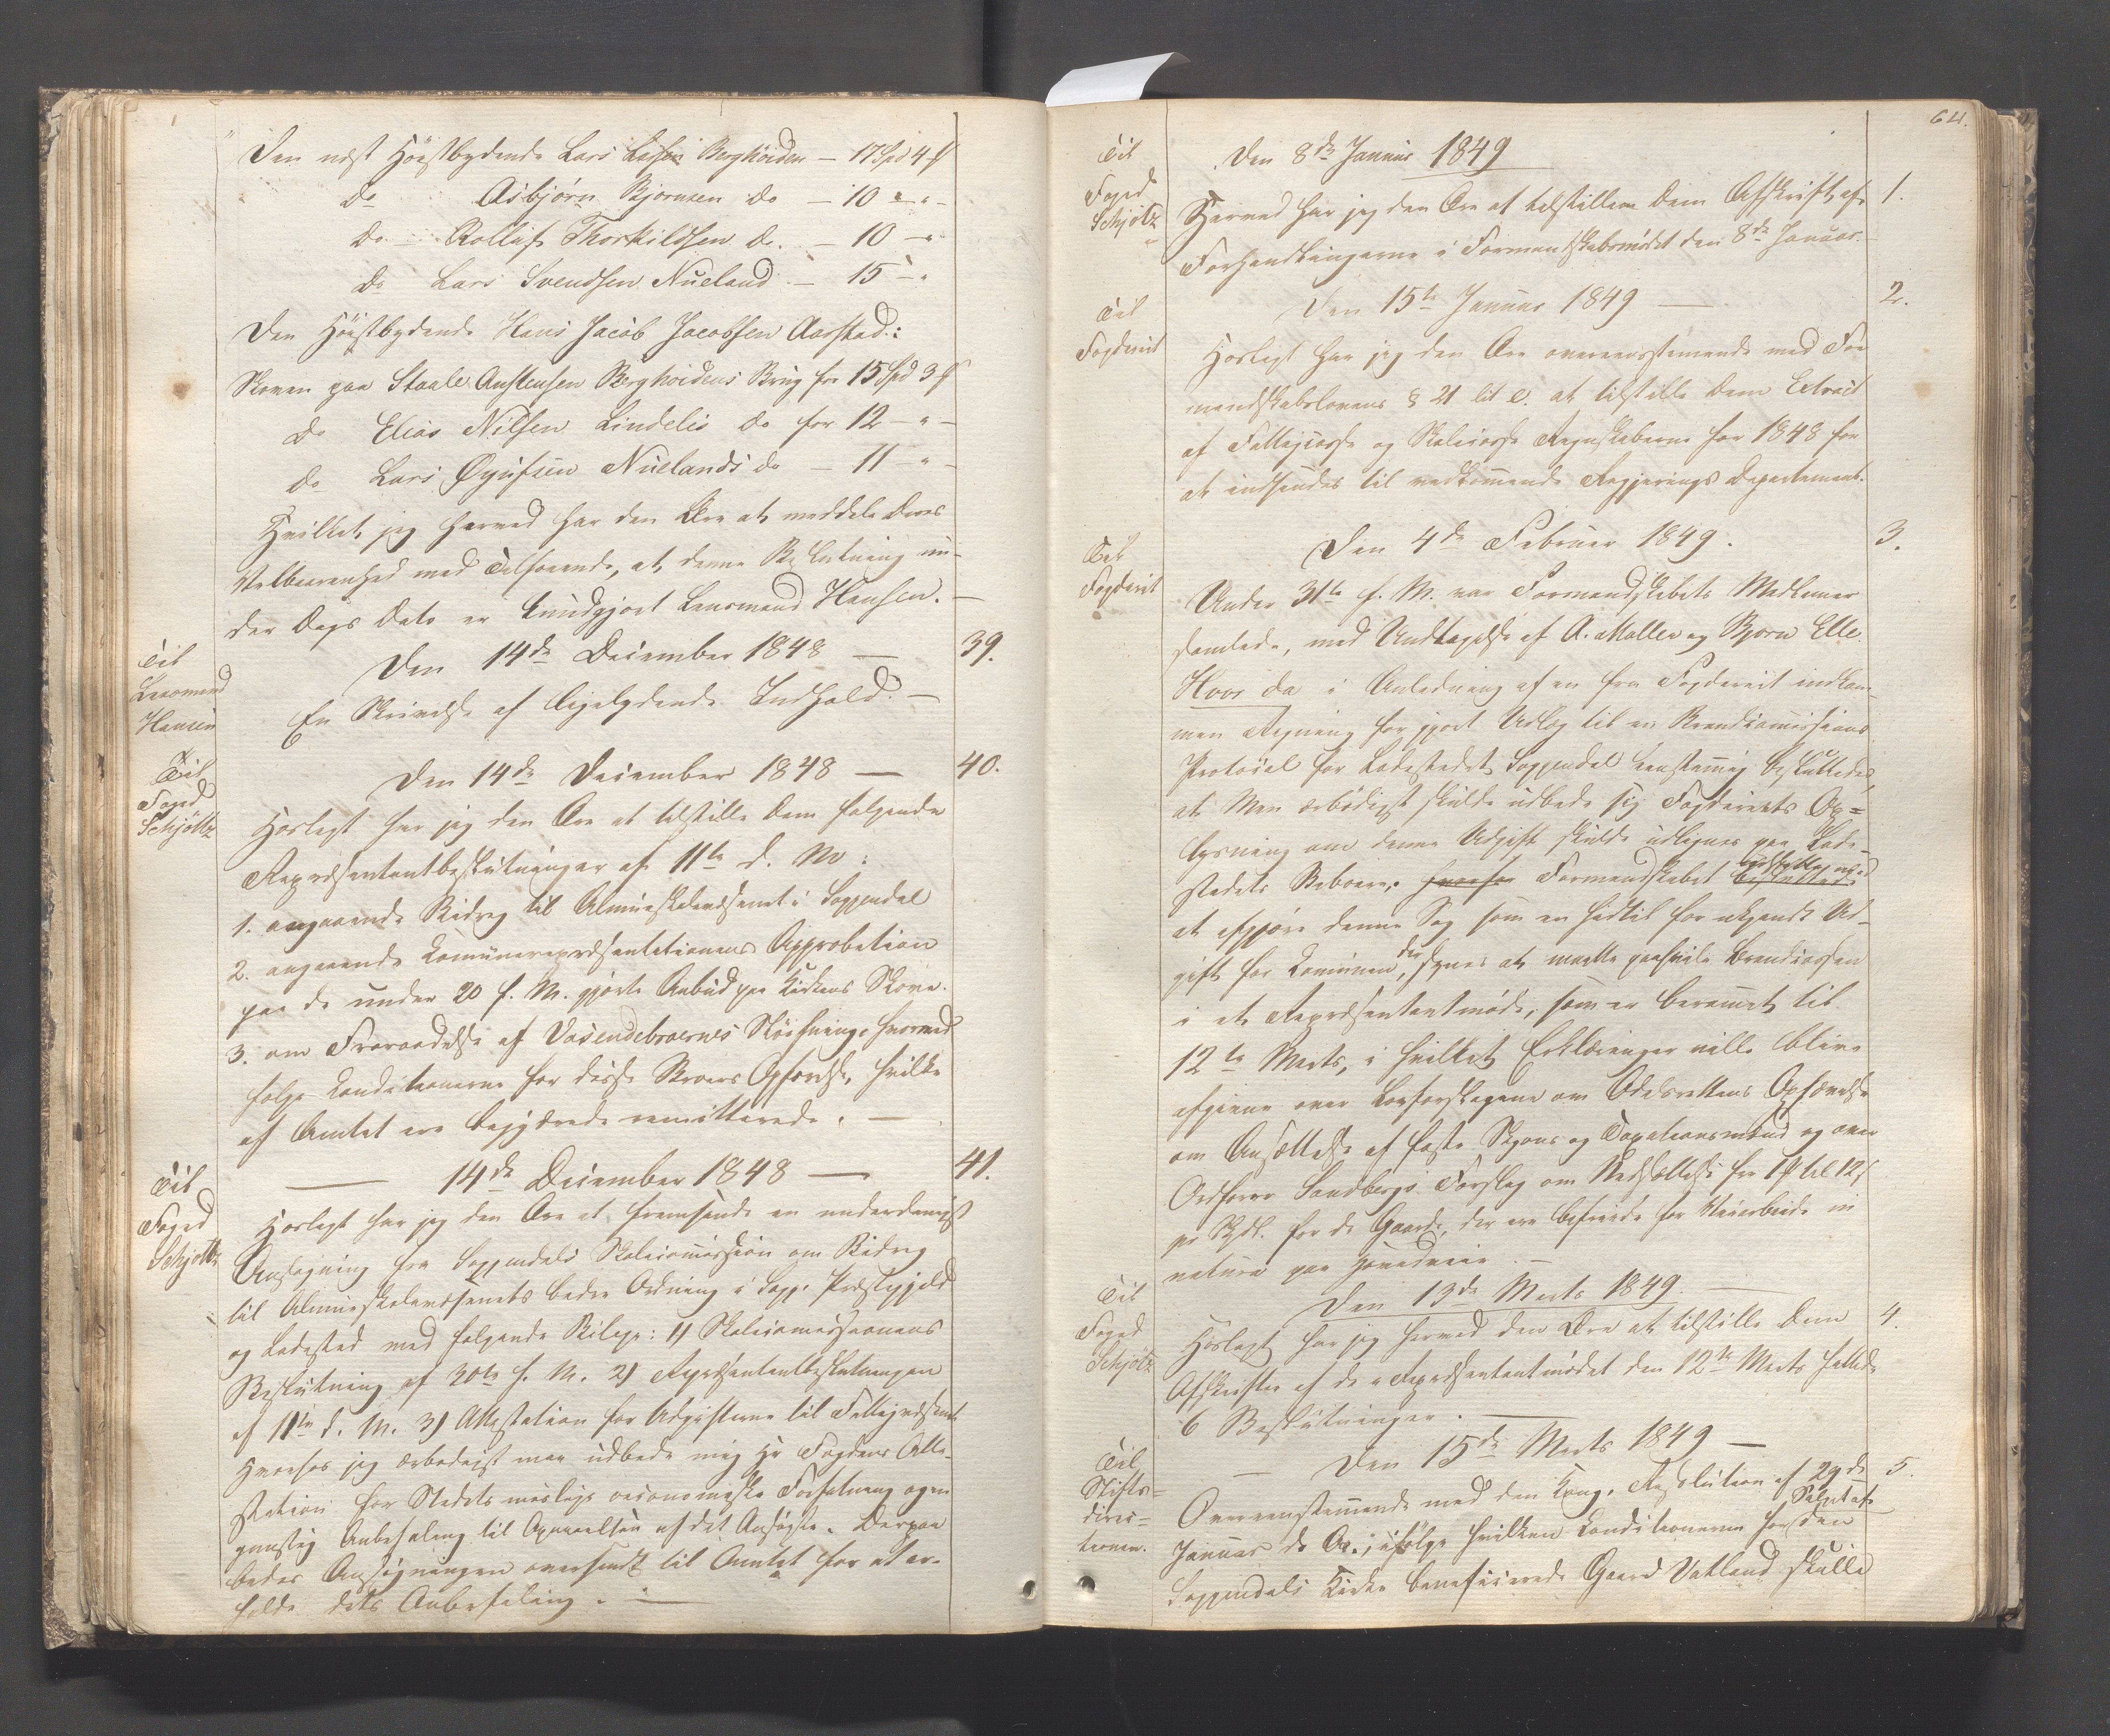 Den næst Høistbydende Lars Lassen Berghoiden – 17 Spd 4 ß
do Asbjørn Bjornsen do – 10 " "
do Rolluf Thorkildsen do. – 10 – "
do Lars Svendsen Nueland – 15 – "
Den Høistbydende Hans Jacob Jacobsen Aarstad:
Skoven paa Staale Anstensen Berghoidens Brug for 15 Spd 3 ß
do Elias Nilsen Lindelis do for 12 – " –
do Lars Nuelands do – 11 – " –
Hvilket jeg herved har den Ære at meddele Deres
Velbaarenhed med Tilføiende, at denne Beslutning un-
der Dags Dato er kundgjort Lensmand Hansen. –
Til
Lensmand
Hansen
Den 14de December 1848 – 39.
En Skrivelse af ligelydende Indhold. –
Til
Foged
Schjøttz
Den 14de December 1848 – 40.
Hoslagt har jeg den Ære at tilstille Dem følgende
Repræsentantbeslutninger af 11te d. M:
1. angaaende Bidrag til Almueskolevæsenet i Soggendal
2. angaaende Communerepræsentationens Approbation
paa de under 20 f. M. gjorte Anbud paa Kirkens Skove.
3. om Fraraadelse af Vasendebroernes Sløifning, hvormed
følge Conditionerne for disse Broers Opførelse, hvilke
af Amtet ere begjærede remitterede. –
Til
Foged
Schjøttz
– 14de December 1848 – 41.
Hoslagt har jeg den Ære at fremsende en underdanigst
Ansøgning fra Soggendals Skolecommission om Bidrag
til Almueskolevæsenets bedre Ordning i Sogg. Præstegjeld
og Ladested med følgende Bilage: 1) Skolecommissionens
Beslutning af 20de f. M. 2) Repræsentantbeslutningen
af 11te d. M. 3) Attestation for Udgifterne til Fattigvæsenet
Hvorhos jeg ærbødigst maa udbede mig Hr Fogdens Atte-
station for Stedets mislige oeconomiske Forfatning og en
gunstig Anbefaling til Opnaaelsen af det Ansøgte. Derpaa
bedes Ansøgningen oversendt til Amtet for at er-
holde dets Anbefaling. –
64.
Til
Foged
Schjøtz
Den 8de Januar 1849
Herved har jeg den Ære at tilstille Dem Afskrift af 1.
Forhandlingerne i Formandskabsmødet den 8de Januar.
Til
Fogderiet
Den 15te Januar 1849 – 2.
Hoslagt har jeg den Ære overeensstemmende med For
mandskabslovens § 21 lit c. at tilstille Dem Extract
af Fattigcasse og Skolecasse Regnskaberne for 1848 for
at indsendes til vedkommende Regjerings Departement.
Til
Fogderiet
Den 4de Februar 1849. 3.
Under 31te f. M. var Formandskabets Medlemer
samlede, med Undtagelse af A. Møller og Bjorn Elle.
Hvor da i Anledning af en fra Fogderiet indkom-
men Regning for gjort Udlæg til en Brandcommissions
Protocol for Ladestedet Soggendal eenstemmig besluttedes,
at Man ærbødigst skulde udbede sig Fogderiets Op=
lysning om denne Udgift skulde udlignes paa Lade-
stedets Beboere. Formandskabet
at afgjøre denne Sag som en hidtil for ukjendt Ud-
gift for Communen, der synes at maatte paahvile Brandcassen
i et Repræsentantmøde, som er berammet til
12te Marts, i hvilket Erklæringer ville blive
afgivne over Lovforslagene om Odelsrettens Ophævelse
om Ansættelse af faste Skjøns og Taxationsmænd og over
Ordfører Sandbergs Forslag om Nedsættelse fra 1 ß til 12 ß
pr Skyld. for de Gaarde, der ere befriede for Veiarbeide in
natura paa Hovedveie. –
Til
Foged
Schjøtz
Den 13de Marts 1849. –
Hoslagt har jeg herved den Ære at tilstille Dem 4.
Afskrifter af de i Repræsentantmødet den 12te Marts fattede
6 Beslutninger. –
Til
Stifts=
direc=
tionen.
– Den 15de Marts 1849 –
Overeenstemmende med den Kong. Resolution af 29de 5.
Januar d. A., ifølge hvilken Conditionerne for Salget af den
Soggendals Kirke beneficerede Gaard Vatland skulle